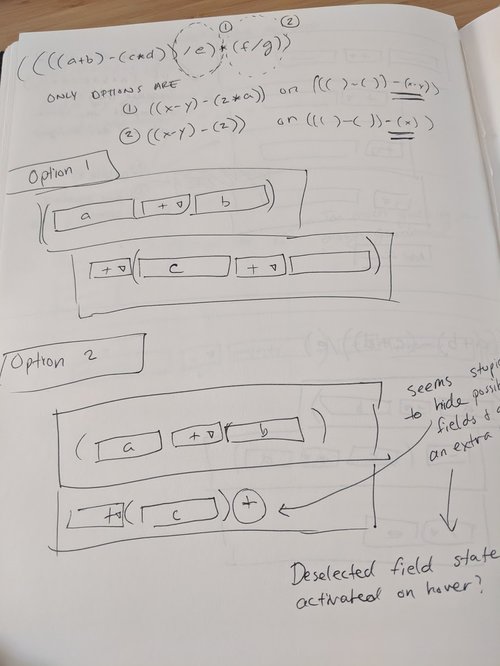 ① ②
((((a+b)-(c*d))/e)*(f/g))
ONLY OPTIONS ARE
① ((x-y)-(z*a)) or ((( )-( ))-(x-y))
② ((x-y)-(z)) or ((( )-( ))-(x))
Option 1
( a + ▽ b )
+ ▽ ( c + ▽ )
Option 2
seems
to hide
fields &
an extra
( a + ▽ b )
+ ▽ ( c ) +
Deselected field state
activated on hover?